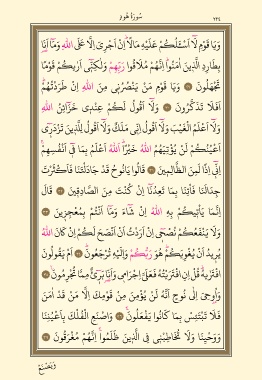 سُورَةُ هُودٍ ٢٢٤
وَيَا قَوْمِ لَٓا اَسْـَٔلُكُمْ عَلَيْهِ مَالًاۜ اِنْ اَجْرِيَ اِلَّا عَلَى اللّٰهِ وَمَٓا اَنَا۬
بِطَارِدِ الَّذ۪ينَ اٰمَنُواۜ اِنَّهُمْ مُلَاقُوا رَبِّهِمْ وَلٰكِنّ۪ٓي اَرٰيكُمْ قَوْمًا
تَجْهَلُونَ ﴿٢٩﴾ وَيَا قَوْمِ مَنْ يَنْصُرُن۪ي مِنَ اللّٰهِ اِنْ طَرَدْتُهُمْۜ
اَفَلَا تَذَكَّرُونَ ﴿٣٠﴾ وَلَٓا اَقُولُ لَكُمْ عِنْد۪ي خَزَٓائِنُ اللّٰهِ
وَلَٓا اَعْلَمُ الْغَيْبَ وَلَٓا اَقُولُ اِنّ۪ي مَلَكٌ وَلَٓا اَقُولُ لِلَّذ۪ينَ تَزْدَر۪ٓي
اَعْيُنُكُمْ لَنْ يُؤْتِيَهُمُ اللّٰهُ خَيْرًاۜ اَللّٰهُ اَعْلَمُ بِمَا ف۪ٓي اَنْفُسِهِمْۚ
اِنّ۪ٓي اِذًا لَمِنَ الظَّالِم۪ينَ ﴿٣١﴾ قَالُوا يَا نُوحُ قَدْ جَادَلْتَنَا فَاَكْثَرْتَ
جِدَالَنَا فَأْتِنَا بِمَا تَعِدُنَٓا اِنْ كُنْتَ مِنَ الصَّادِق۪ينَ ﴿٣٢﴾ قَالَ
اِنَّمَا يَأْت۪يكُمْ بِهِ اللّٰهُ اِنْ شَٓاءَ وَمَٓا اَنْتُمْ بِمُعْجِز۪ينَ ﴿٣٣﴾
وَلَا يَنْفَعُكُمْ نُصْح۪ٓي اِنْ اَرَدْتُ اَنْ اَنْصَحَ لَكُمْ اِنْ كَانَ اللّٰهُ
يُر۪يدُ اَنْ يُغْوِيَكُمْۜ هُوَ رَبُّكُمْ وَاِلَيْهِ تُرْجَعُونَۜ ﴿٣٤﴾ اَمْ يَقُولُونَ
افْتَرٰيهُۜ قُلْ اِنِ افْتَرَيْتُهُ فَعَلَيَّ اِجْرَام۪ي وَاَنَا۬ بَر۪ٓيءٌ مِمَّا تُجْرِمُونَ۟ ﴿٣٥﴾
وَاُو۫حِيَ اِلٰى نُوحٍ اَنَّهُ لَنْ يُؤْمِنَ مِنْ قَوْمِكَ اِلَّا مَنْ قَدْ اٰمَنَ
فَلَا تَبْتَئِسْ بِمَا كَانُوا يَفْعَلُونَۚ ﴿٣٦﴾ وَاصْنَعِ الْفُلْكَ بِاَعْيُنِنَا
وَوَحْيِنَا وَلَا تُخَاطِبْن۪ي فِي الَّذ۪ينَ ظَلَمُواۚ اِنَّهُمْ مُغْرَقُونَ ﴿٣٧﴾
وَيَصْنَعُ